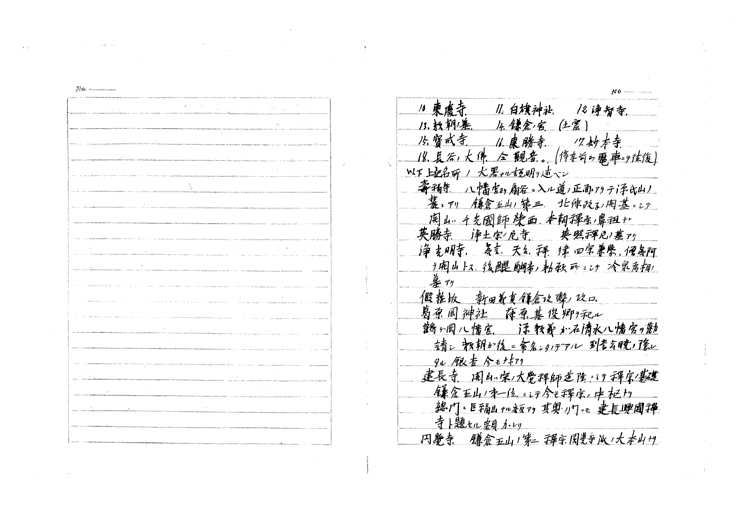 No.
No
10. 東慶寺 11. 白旗神社 12. 浄智寺
13. 頼朝ノ墓 14. 鎌倉ノ宮 (土窟)
15. 宝戒寺 16. 東勝寺 17. 妙本寺
18. 長谷ノ大佛 仝観音。(停車前ノ電車ニテ往復)
以下上記名所ノ大畧ナル説明ヲ述ベン
寿福寺 八幡宮ヨリ扇谷ニ入ル道ノ正面アリテ源氏山ノ
鎌倉五山ノ第三 北條政子ノ開基ニシテ
開山ハ千光國師榮西 本朝禅宗ノ鼻祖ナリ
英勝寺 浄土宗ノ尼寺 英照禅尼ノ墓アリ
浄光明寺 真言 天台 禅 律 四宗兼学
ヲ開山トス 後醍醐帝ノ勅願所ニシテ 冷泉為相ノ
墓アリ
假粧坂 新田義貞鎌倉攻撃ノ攻口
葛原岡神社 藤原基俊卿ヲ祀ル
鶴ヶ岡八幡宮 源頼義ガ石清水八幡宮ヲ勧
請シ 頼朝ガ後ニ
タル 銀杏 今モ
建長寺 開山ハ宋ノ大覺禅師道隆ニシテ禅宗ノ
鎌倉五山ノ第一位ニシテ今モ禅宗ノ中枢ナリ
總門ニ巨福山ナル額アリ 其奥ノ門ニモ 建長興國禅
寺ト題セル額
円覺寺 鎌倉五山ノ第二 禅宗円覺寺派ノ大本山ナリ